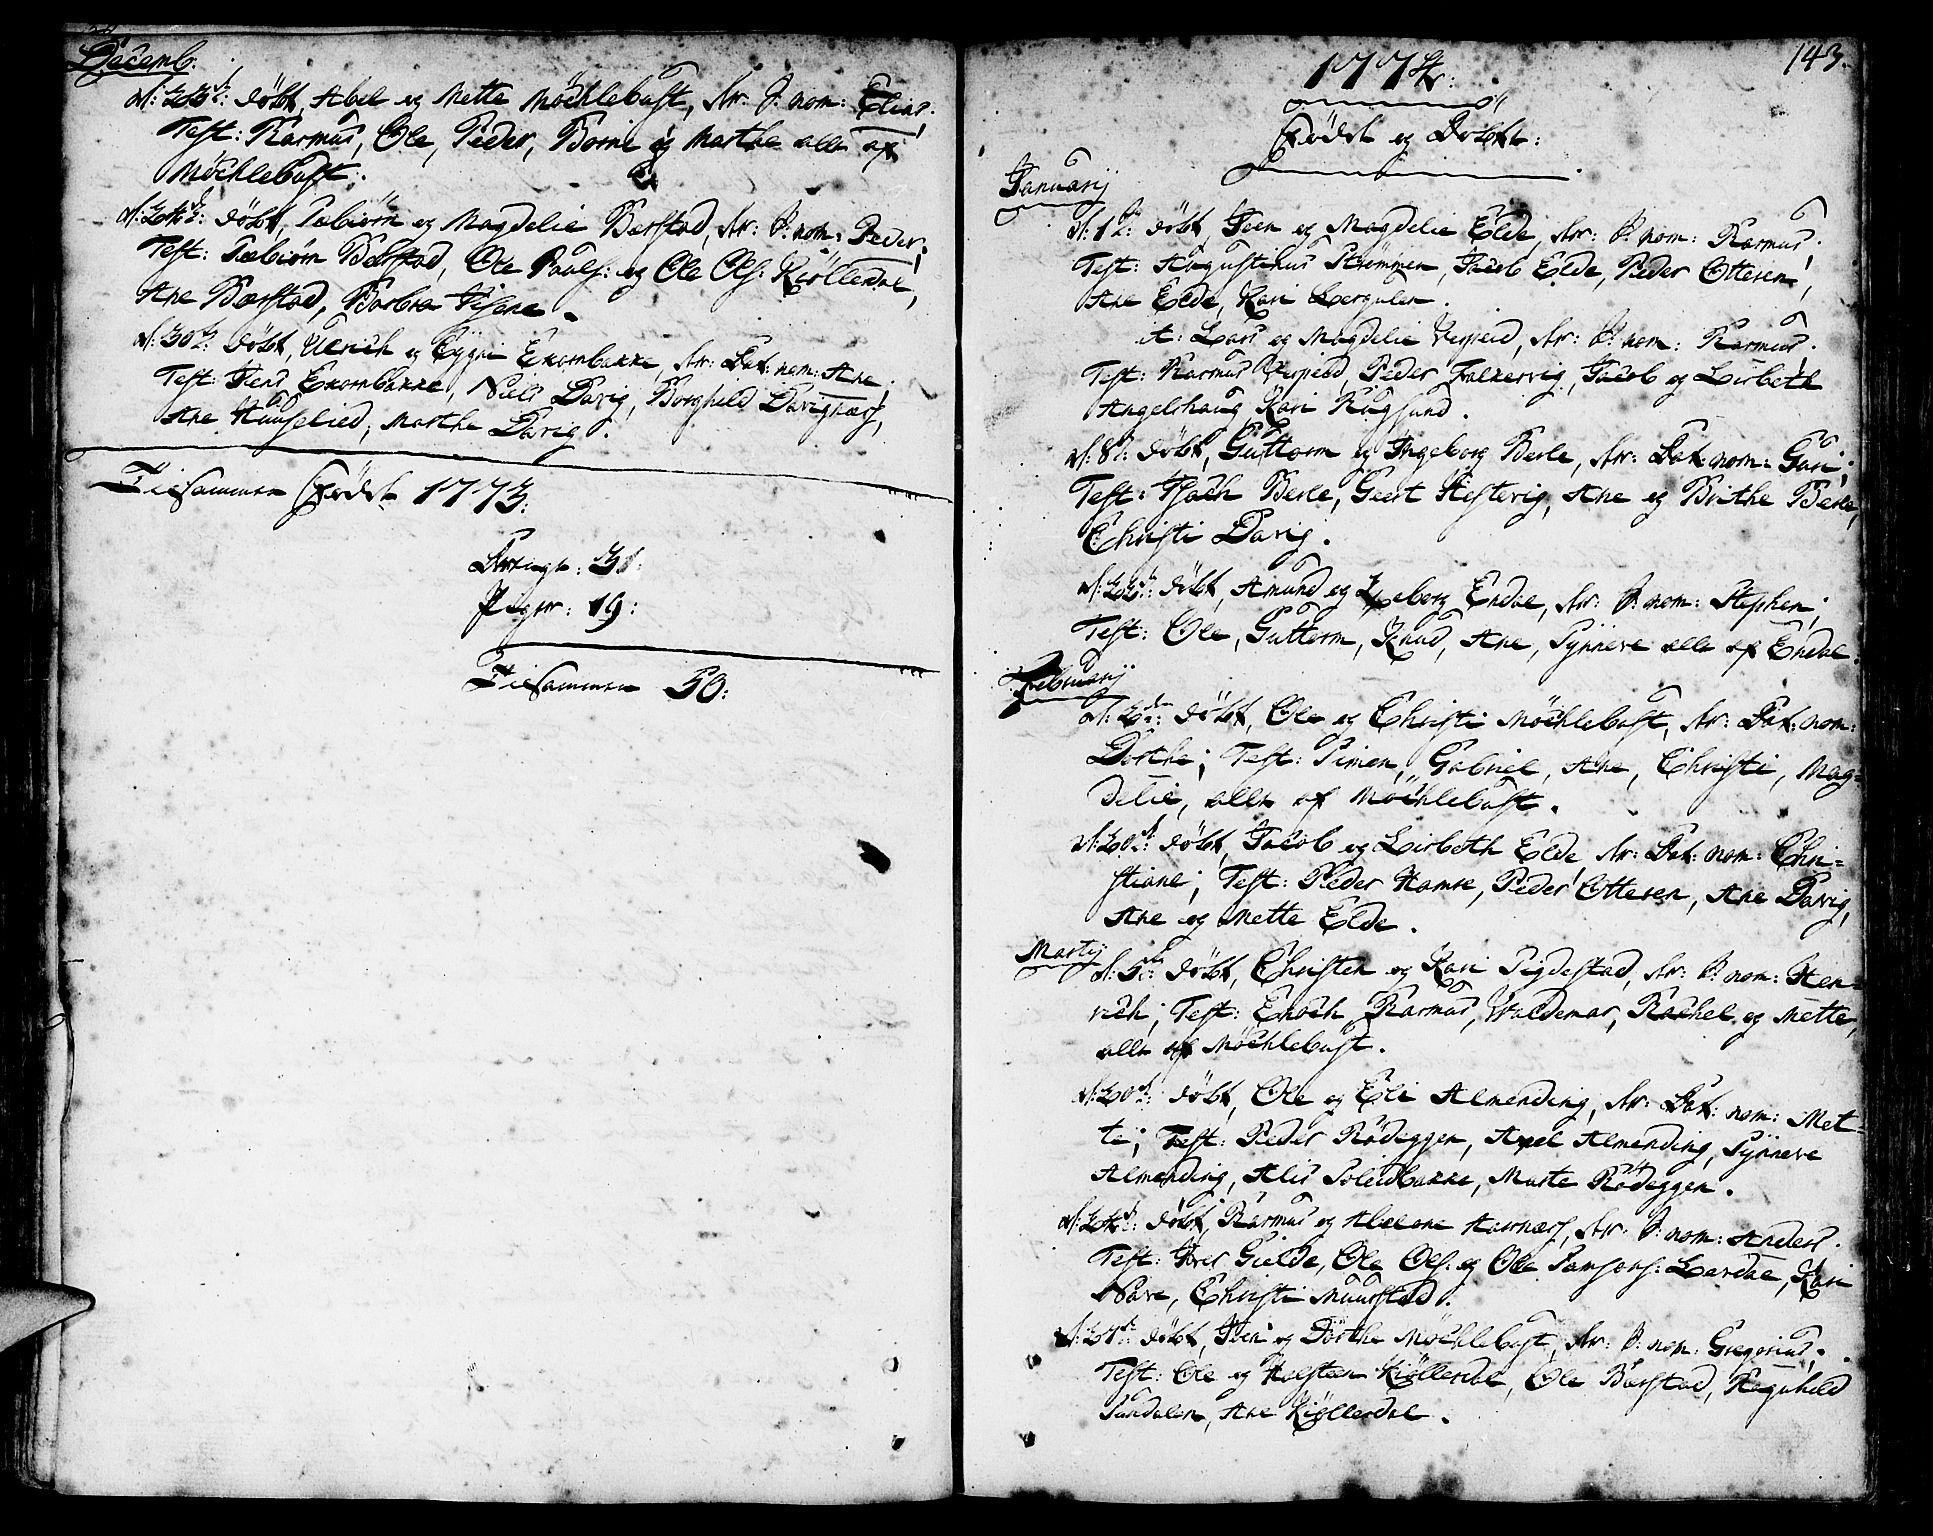 Decemb.
d: 22de: döbt, Abel og Mette Möchlebust, der: S: nom: Elias.
Test: Rasmus, Ole, Peder, Borni og Marthe alle af
Möchlebust.
döbt, Tæbiörn og Magdelie Bærstad, der: S: nom: Peder;
Test: Tæbiörn Bærstad, Ole Pauls: og Ole Ols: Kiöllerdal,
Ane Bærstad, Barbra
d: 30te: döbt, Ulrich og Eygni Exornbakke, der: Dat: nom: Ane;
Test: Jens Exornbakke, Niels Davig, Borghild Davignæss,
Ane Hauselied, Marthe Davig.
Tilsammen Födde 1773:
Drenge: 31:
Piger: 19:
Tilsammen 50:
143.
1774:
Födde og Döbte:
Januarij
d: 1te: döbt, Jen og Magdelie Elde, der: S: nom: Rasmus.
Test: Augustinus Strömmen, Jacob Elde, Peder Ottesen,
Ane Elde, Kari Lergulen.
Lars og Magdelie der: S: nom: Rasmus;
Test: Rasmus Peder Falkervig, Jacob og Lisbeth
Angelshaug Kari Rugsund.
d: 8de: döbt, Guttorm og Ingeborg Berle, der: Dat: nom: Guri;
Test: Isach Berle, Geert Hestevig, Ane og Brithe Berle,
Christi Davig.
döbt, Amund og Endal, der: S: nom: Stephen;
Test: Ole, Guttorm, Knud, Ane, Synneve alle af Endal.
Februarij
d: 2den: döbt, Ole og Christi Möchlebust, der: Dat: nom:
Dorthe; Test: Simen, Gabriel, Ane, Christi, Mag-
delie, alle af Möchlebust.
d: 20de: döbt, Jacob og Lisbeth Elde, der: Dat: nom: Chri-
stiane; Test: Peder Hamre, Peder Ottesen, Ane Davig,
Ane og Mette Elde.
Martij
döbt, Christen og Kari Sigdestad, der: S: nom: Hen-
rich; Test: Enoch, Rasmus, Waldemar, Rachel og Mette,
alle af Möchlebust.
d: 20de: döbt, Ole og Eli Almending, der: Dat: nom: Met-
te; Test: Peder Rödeggen, Axel Almending, Synneve
Almending, Alis Soleidbakke, Marte Rödeggen.
döbt, Rasmus og Hausnæss, der: S: nom: Anders.
Test: Iver Gielde, Ole Ols: og Ole Samsons: Lerdal, Kari
Nave, Christi Muurstad.
döbt, Jen og Dorthe Möchlebust, der: S: nom: Gregorius.
Test: Ole og Holsteen Kiöllerdal, Ole Bærstad, Ragnhild
Sundalen, Ane Kiöllerdal.